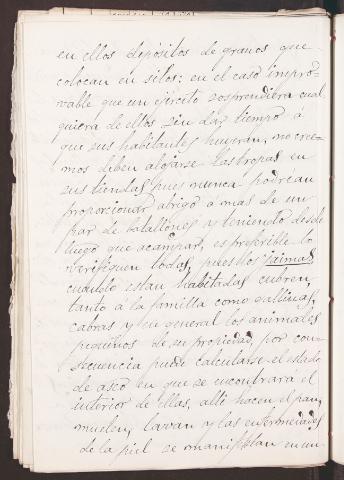 en ellos depósitos de granos que
colocan en silos: en el caso impro-
vable que un ejército sosprendiera cual
quiera de ellos sin dar tiempo á
que sus habitantes huyeran, no cree-
mos deben alojarse las tropas en
sus tiendas pues nunca podrean
proporcionar abrigo á mas de un
par de batallones y teniendo desde
luego que acampar, es preferible lo
verifiquen todas, pues los jaimas
cuando estan habitadas cubren
tanto á la familia como gallinas,
cabras y en general los animales
pequeños de su propiedad, por con-
secuencia puede calcularse el estado
de aseo en que se encontrara el
interior de ellas, alli hacen el pan,
muelen, lavan y las enfermedades
de la piel se manifiestan en un